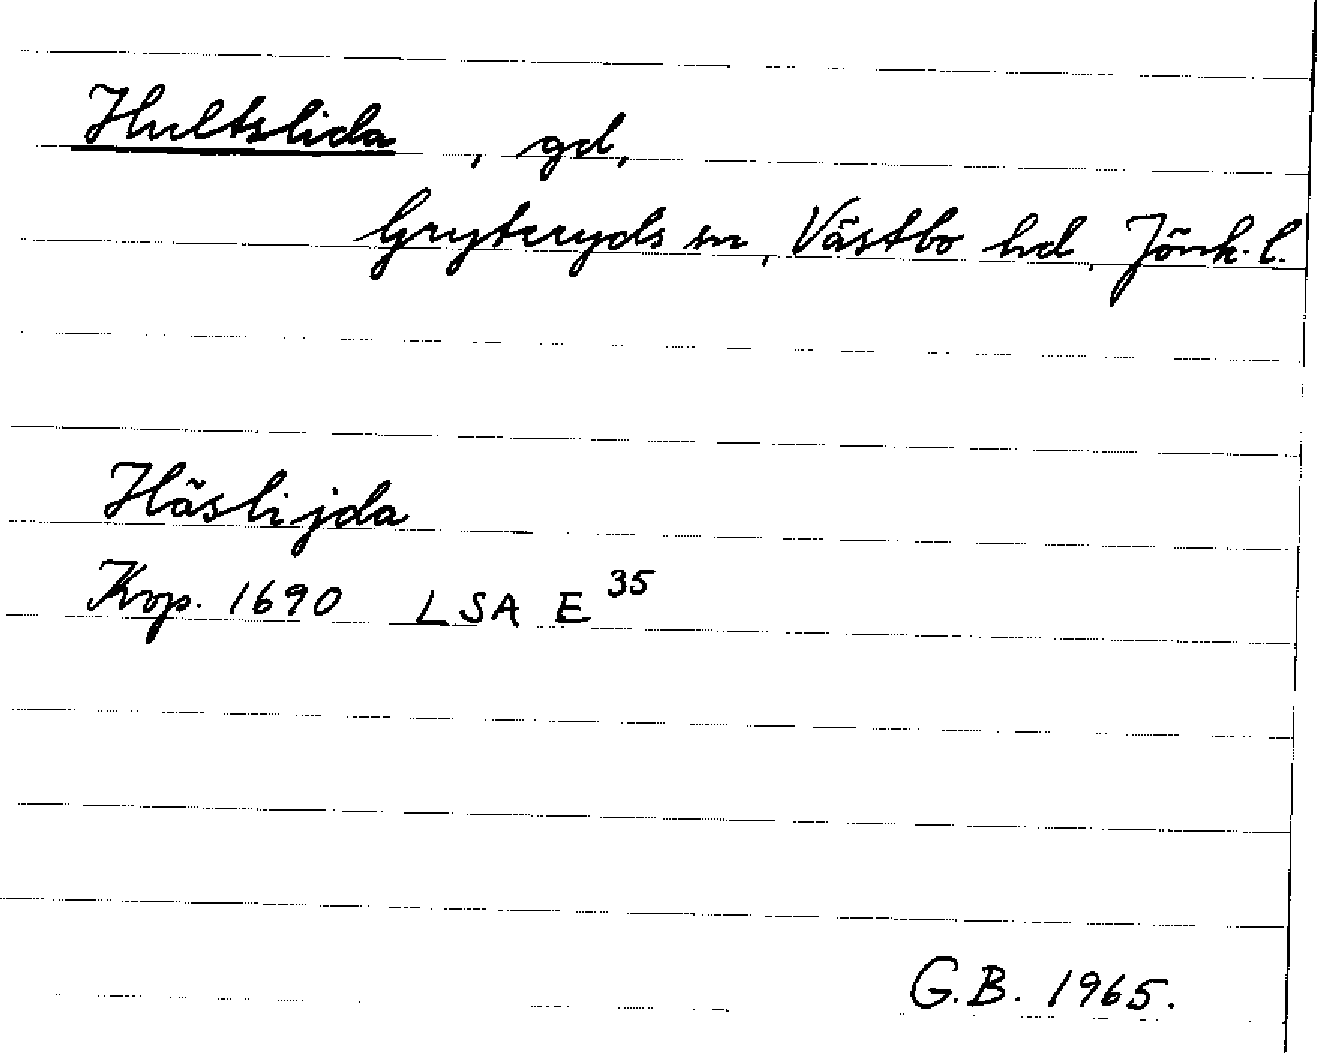 Hultslida, gd,
Gryteryds sn, Västbo hd, Jönk. l.
Häslijda
Kop. 1690 LSA E 35
G.B. 1965.